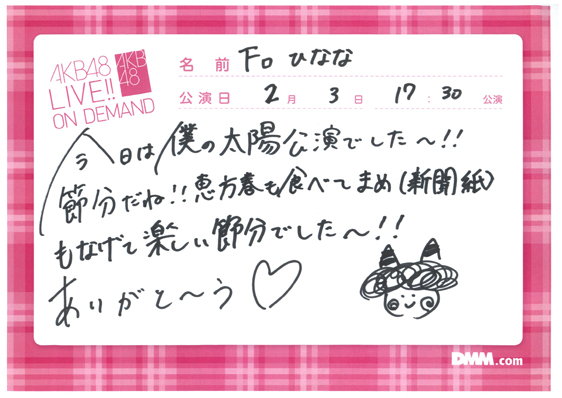 AKB48
LIVE!!
ON DEMAND
AKB
48
名 前 下口ひなな
公演日 2月 3日 17:30 公演
今日は僕の太陽公演でした〜!!
節分だね!!恵方巻も食べてまめ(新聞紙)
もなげて楽しい節分でした〜!!
ありがと〜う♡
DMM.com